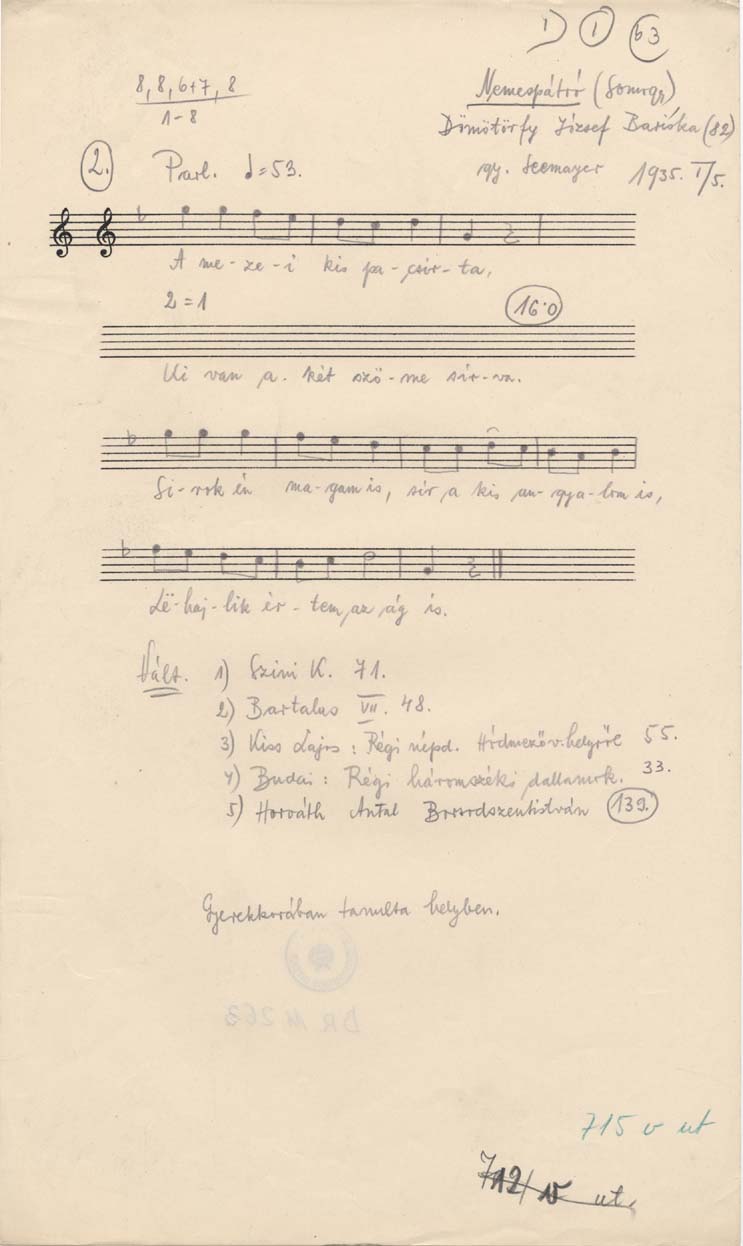 I) I b3
8, 8, 6+7, 8
1-8
Nemespátró (Somogy)
Dömötörfy József Bariska (82)
2. Parl. = 53.
gy. Seemayer 1935. I/5.
A me-ze-i kis pa-csir-ta,
2=1
16·0
Ki van a két szö-me sír-va.
Si-rok én ma-gam is, sír a kis an-gya-lom is,
Lë-haj-lik ër-tem az ág is.
Vált. 1) Szini K. 71.
2) Bartalus VII. 48.
3) Kiss Lajos: Régi népd. Hódmezőv.helyről 55.
4) Budai: Régi háromszéki dallamok. 33.
5) Horváth Antal 139.
Gyerekkorában tanulta helyben.
DR M 263
715 v ut
712/15 ut.